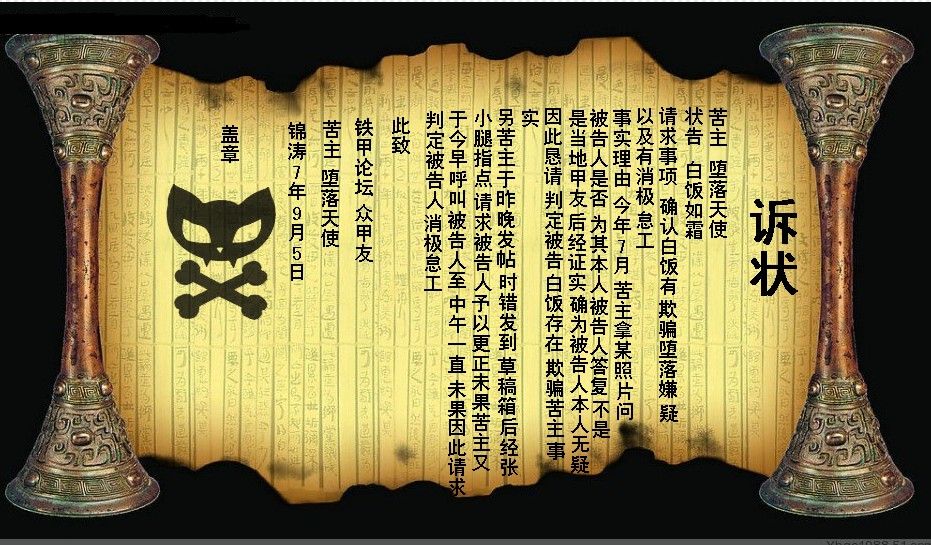 诉状
苦主 堕落天使
状告 白饭如霜
请求事项 确认白饭有 欺骗堕落嫌 疑
以及有消极 怠工
事实理由 今年7月 苦主拿某照片问
被告人是否 为其本人被告人答复不是
是当地甲友 后经证实 确为被告人本人无疑
因此恳请 判定被告 白饭存在 欺骗苦主事
实
另苦主于昨晚发帖 时错发到 草稿箱后经张
小腿指点 请求被告人予以更正未果苦主又
于今早呼叫被告人至 中午一直 未果因此请求
判定被告人 消极怠工
此致
铁甲论坛 众甲友
苦主 堕落天使
锦涛7年9月5日
盖章